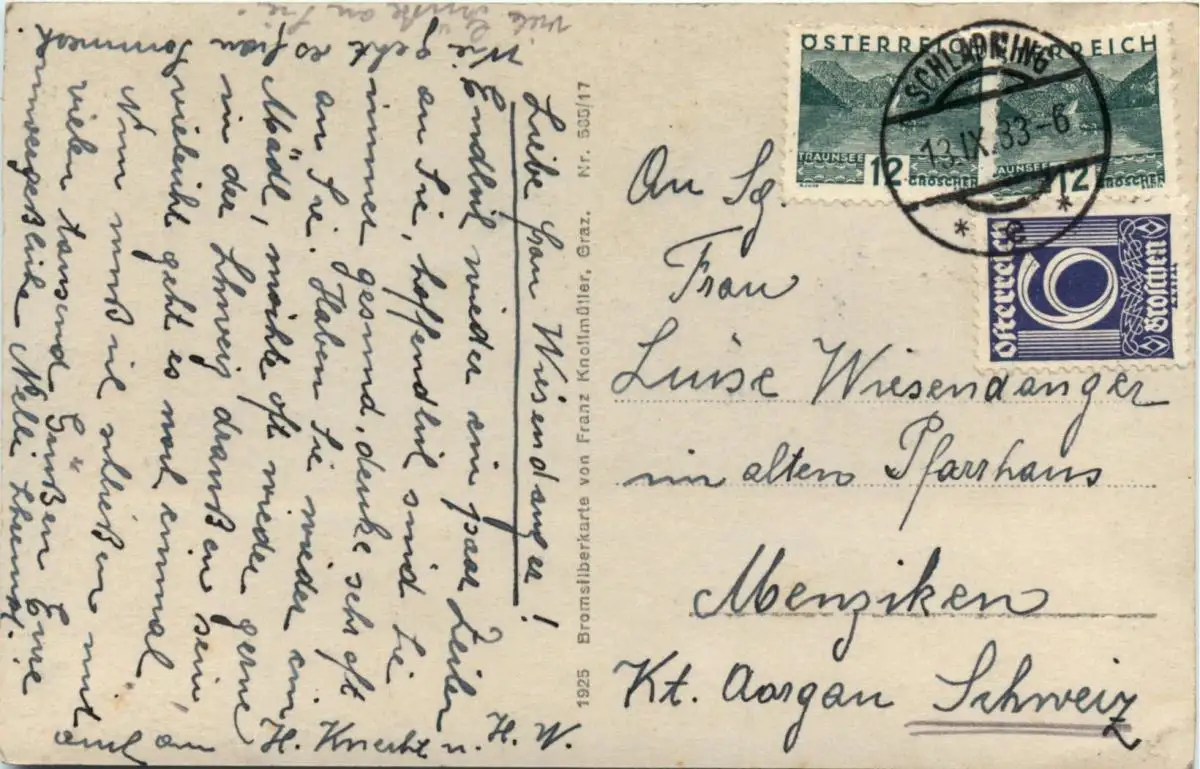 Liebe Frau Wiesendanger!
Endlich wieder ein paar Zeilen
an Sie, hoffendlich sind Sie
immer gesund, denke sehr oft
an Sie. Haben Sie wieder ein
Mädl, möchte oft wieder gerne
in der Schweiz draußen sein,
vieleicht geht es noch einmal
Nun muß ich schließen mit
vielen tausend Grüßen Eure
unvergeßliche Nelli
auch an H. Knecht u. H. W.
Wie geht es Frau
viele an Sie
1925 Bromsilberkarte von Franz Knollmüller, Graz. Nr. 505/17
An Sg.
Frau
Luise Wiesendanger
im alten Pfarrhaus
Menziken
Kt. Aargau Schweiz
ÖSTERREICH
TRAUNSEE
12 GROSCHEN
ÖSTERREICH
TRAUNSEE
12 GROSCHEN
SCHLADMING
13.IX.33-6
* e *
Österreich
6
Groschen